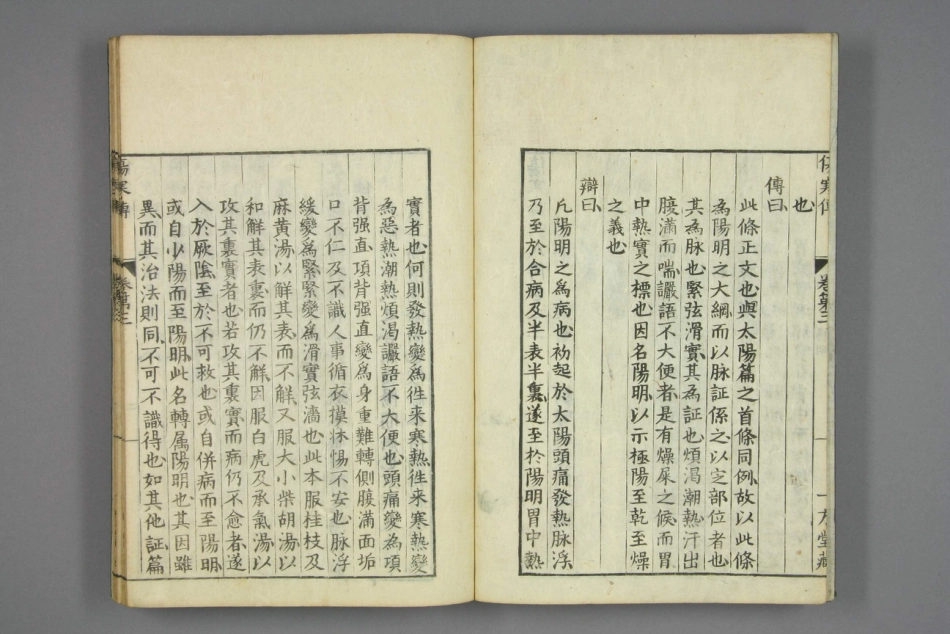 傷寒傳
卷第三
一方堂藏
也
傳曰
此條正文也與太陽篇之首條同例故以此條
為陽明之大綱而以脉証係之以定部位者也
其為脉也緊弦滑實其為証也煩渴潮熱汗出
腹滿而喘讝語不大便者是有燥屎之候而胃
中熱實之標也因名陽明以示極陽至乾至燥
之義也
辯曰
凢陽明之為病也初起於太陽頭痛發熱脉浮
乃至於合病及半表半裏遂至於陽明胃中熱
實者也何則發熱變為徃来寒熱徃来寒熱變
為惡熱潮熱煩渴讝語不大便也頭痛變為項
背强直項背强直變為身重難轉側腹滿面垢
口不仁及不識人事循衣摸牀惕不安也脉浮
緩變為緊緊變為滑實弦濇也此本服桂枝及
麻黄湯以解其表而不觧又服大小柴胡湯以
和觧其表裏而仍不觧因服白虎及承氣湯以
攻其裏實者也若攻其裏實而病仍不愈者遂
入於厥陰至於不可救也或自併病而至陽明
或自少陽而至陽明此名轉属陽明也其因雖
異而其治法則同不可不識得也如其他証篇
傷寒傳
卷第三